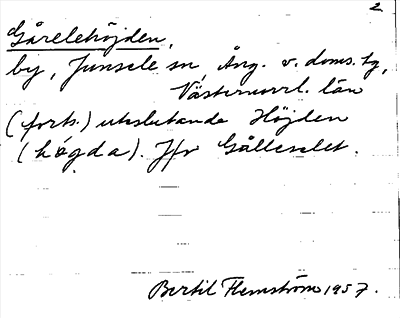 2
Gårelehöjden,
by, Junsele sn, Ång. v. doms. tg,
Västernorrl. län
(forts.) uteslutande Höjden
(högda). Jfr Gålleselet.
Bertil Flemström 1957.